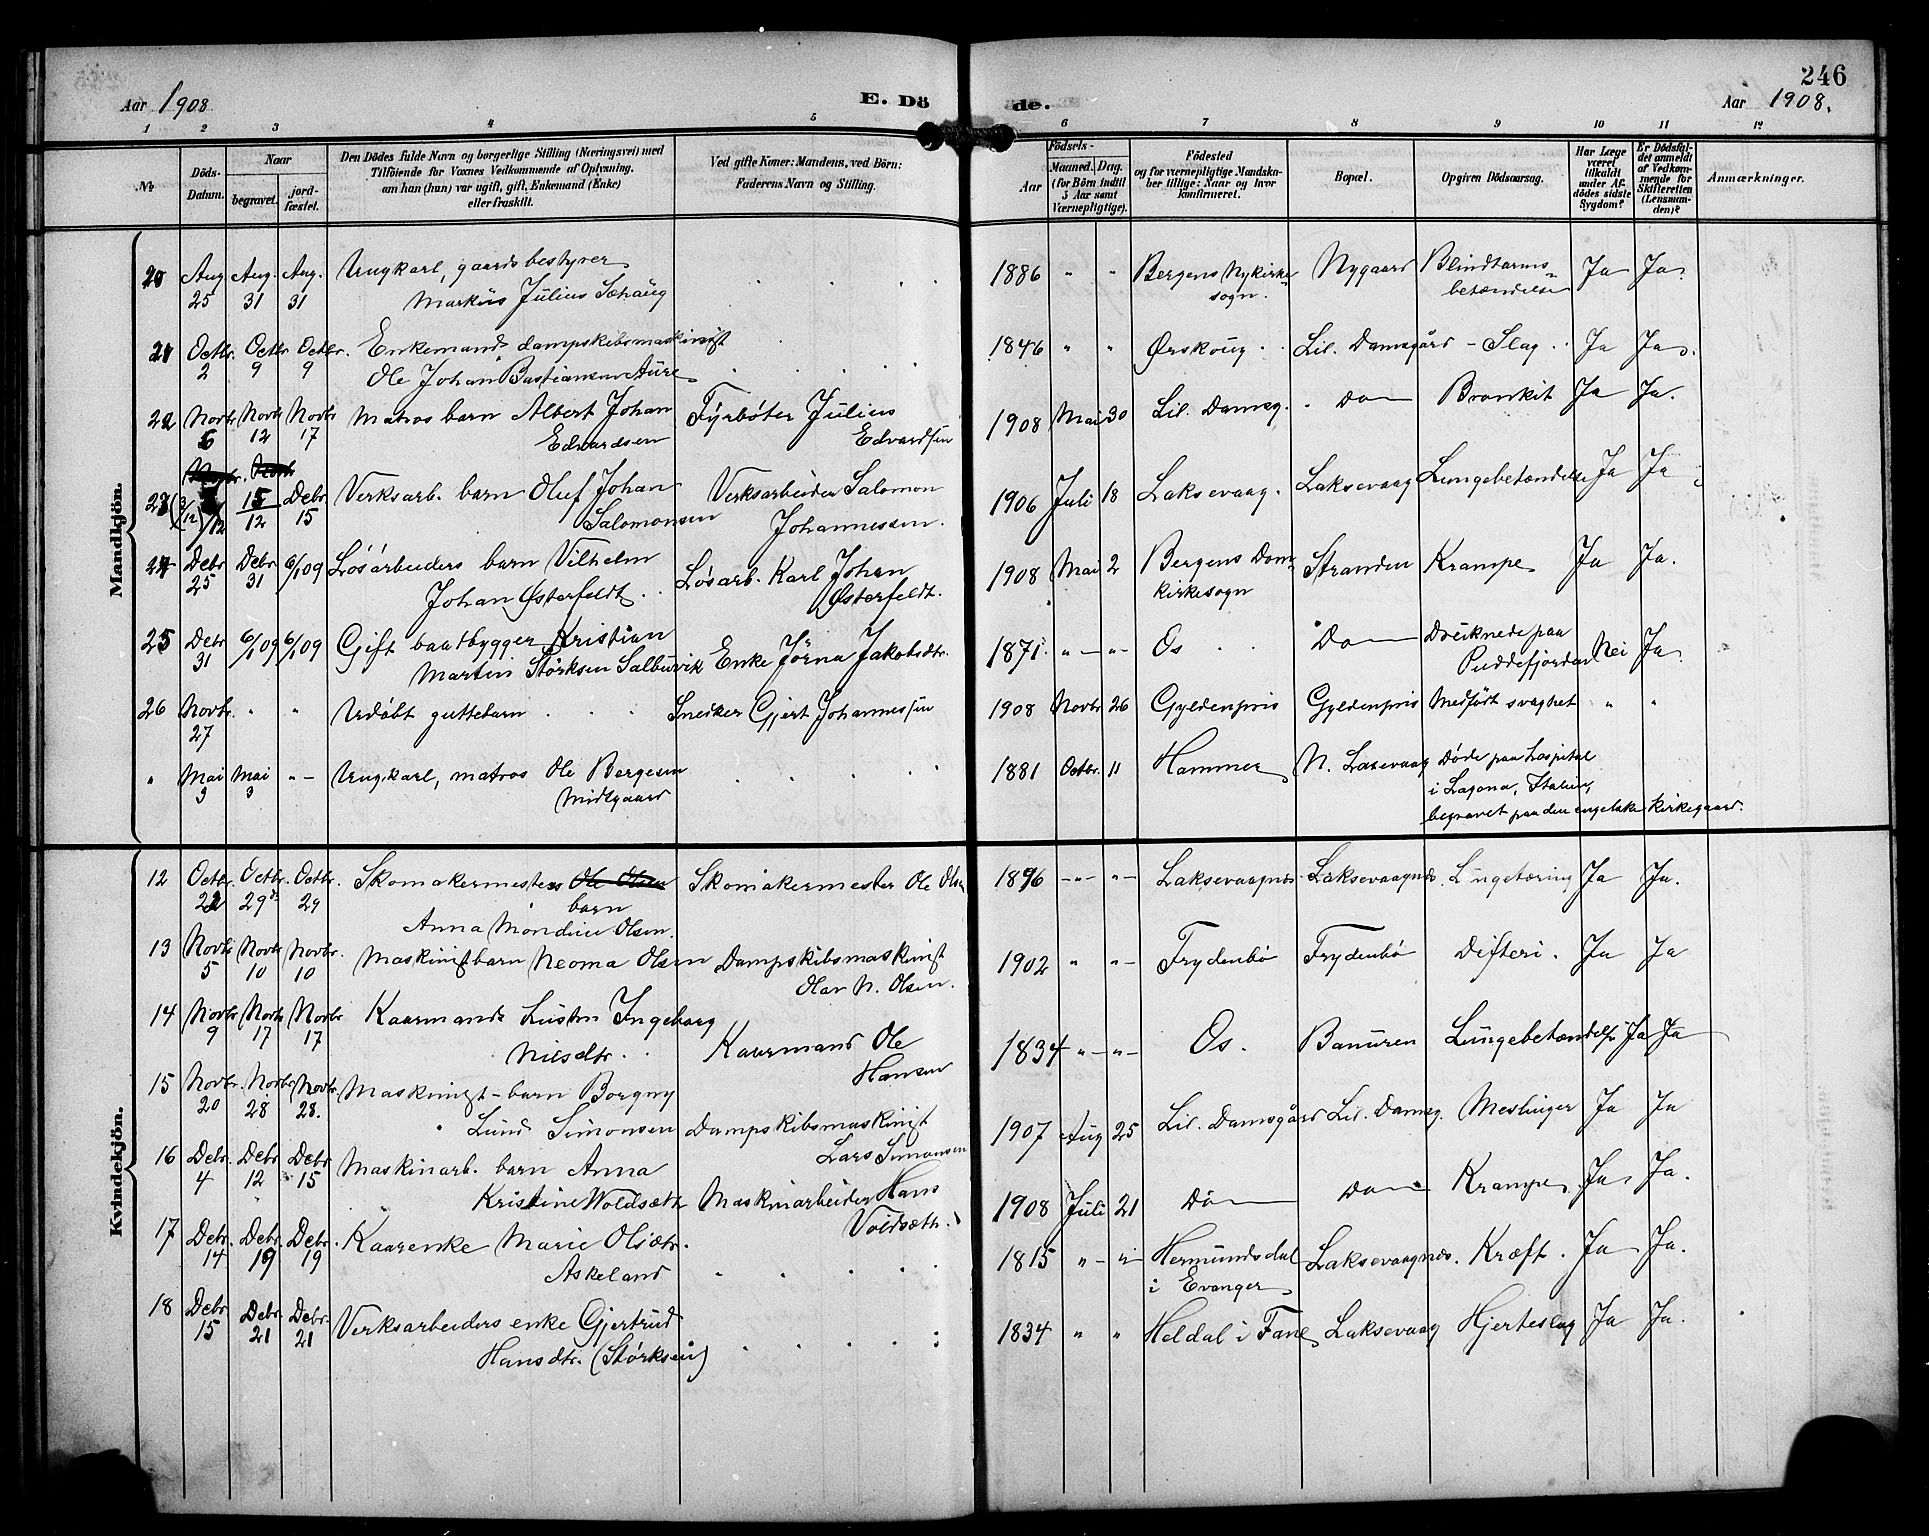 246
Aar 1908. E. Dö de. Aar 1908.
1 2 3 4 5 6 7 8 9 10 11 12
No. Döds-Datum. Naar begravet. jord-fæstet. Den Dödes fulde Navn og borgerlige Stilling (Næringsvei) med Tilföiende for Voxnes Vedkommende af Oplysning, om han (hun) var ugift, gift, Enkemand (Enke) eller fraskilt. Ved gifte Koner: Mandens, ved Börn: Faderens Navn og Stilling. Aar Födsels- Maaned. Dag. (for Börn indtil 5 Aar samt Værnepligtige). Födested og for værnepligtige Mandskaber tillige: Naar og hvor konfirmeret. Bopæl. Opgiven Dödsaarsag. Har Læge været tilkaldt under Afdödes sidste Sygdom? Er Dödsfaldet anmeldt af Vedkommende for Skifteretten (Lensmanden)? Anmærkninger.
Mandkjön.
20 Aug 25 Aug. 31 Aug. 31 Ungkarl, gaardsbestyrer Markus Julius Schaug 1886 " " Bergens Nykirkesogn. Nygaard Blindtarmsbetændelse Ja Ja.
21 Octbr. 2 Octbr 9 Octbr. 9 Enkemand dampskibsmaskinist Ole Johan Bastiansen Aure 1846 " " Ørskoug Lil. Damsgård - Slag Ja Ja.
22 Novbr. 6 Novbr 12 Novbr. 17 Matros barn Albert Johan Edvardsen Fyrbøter Julius Edvardsen 1908 Mai 30 Lil. Damsg. Do Bronkit Ja Ja.
23 15/12 Debr. 15 Verksarb. barn Oluf Johan Salomonsen Verksarbeider Salomon Johannessen. 1906 Juli 18 Laksevaag. Laksevaag Lungebetændelse Ja Ja
24 Debr. 25 Debr. 31 6/1 09 Løsarbeiders barn Vilhelm Johan Østerfeldt. Løsarb. Karl Johan Østerfeldt. 1908 Mai 2 Bergens Domkirkesogn Stranden Krampe Ja Ja.
25 Debr 31 6/1 09 6/1 09 Gift baatbygger Kristian Martin Størksen Salbuvik Enke Jörna Jakobsdtr. 1871. " " Os Do Druknede paa Puddefjorden Nei Ja
26 Novbr. 27 " " Udøbt guttebarn Snedker Gjert Johannessen 1908 Novbr 26 Gyldenpris Gyldenpris Medfødt svaghet " "
" Mai 3 Mai 3 " Ungkarl, matros Ole Bergesen Midtgaard 1881 Octbr. 11 Hammer N. Laxevaag Døde paa hospital i Lagona, Italien, begravet paa den engelske kirkegaard.
Kvindekjön.
12 Octbr. 22 Octbr. 29 Octbr. 29 Skomakermesters Ole Olsen barn Anna Mondine Olsen. Skomakermester Ole Olsen 1896 " " Laksevaagnes Laksevaagnes. Lungetæring Ja Ja.
13 Novbr 5 Novbr 10 Novbr. 10 Maskinistbarn Neoma Olsen Dampskibsmaskinist Olav N. Olsen. 1902 " " Frydenbø Frydenbø Difteri. Ja Ja
14 Novbr 9 Novbr 17 Novbr. 17 Kaarmands Ingeborg Nilsdtr. Kaarmand Ole Hansen 1834 " " Os. Banuren Lungebetændelse Ja Ja
15 Novbr. 20 Novbr 28 Novbr. 28. Maskinist-barn Borgny Lund Simonsen Dampskibsmaskinist Lars Simonsen 1907 Aug 25 Lil. Damsgård Lil. Damsg. Meslinger Ja Ja
16 Debr. 4 Debr 12 Debr. 15 Maskinarb. barn Anna Kristine Woldsæth Maskinarbeider Hans Voldsæth. 1908 Juli 21 Do Do Krampe. Ja Ja.
17 Debr. 14 Debr. 19 Debr. 19 Kaarenke Marie Olsdtr. Askeland 1815 " " Hermundsdal i Evanger Laksevaagnes. Kræft. Ja Ja.
18 Debr. 15 Debr. 21 Debr. 21 Verksarbeiders enke Gjertrud Hansdtr. (Størksen) 1834 " " Heldal i Fane Laksevaag Hjerteslag Ja Ja.